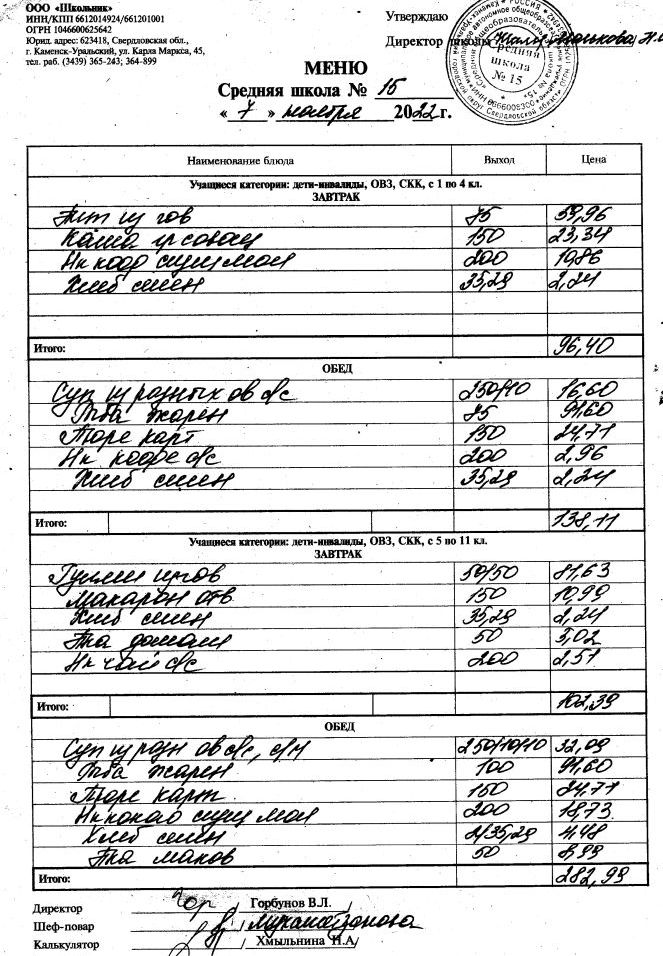 ООО «Школьник»
ИНН/КПП 6612014924/661201001
ОГРН 1046600625642
Юрид. адрес: 623418, Свердловская обл.,
г. Каменск-Уральский, ул. Карла Маркса, 45,
тел. раб. (3439) 365-243; 364-899
Утверждаю
Директор школы
Средняя школа № 15
МЕНЮ
Средняя школа № 15
« 7 » ноября 2022 г.
Наименование блюда Выход Цена
Учащиеся категории: дети-инвалиды, ОВЗ, СКК, с 1 по 4 кл.
ЗАВТРАК
гов 75 59,96
Каша 150 23,34
Нк 200 10,86
Хлеб 35,29 2,24
Итого: 96,40
ОБЕД
Суп из разных ов с/с 250/10 16,60
жарен 75 91,60
Пюре карт 150 24,71
Нк кофе с/с 200 2,96
Хлеб 35,29 2,24
Итого: 138,11
Учащиеся категории: дети-инвалиды, ОВЗ, СКК, с 5 по 11 кл.
ЗАВТРАК
Гуляш из гов 50/50 81,63
Макарон отв 150 10,99
Хлеб 35,29 2,24
50 5,02
Нк чай с/с 200 2,51
Итого: 102,39
ОБЕД
Суп из разн ов с/с, 250/10/10 32,09
жарен 100
Пюре карт 150 24,71
Нк какао 200 18,73
Хлеб 2/35,29 4,48
маков 50 8,99
Итого: 282,99
Директор / Горбунов В.Л.
Шеф-повар /
Калькулятор / Хмыльнина Н.А/